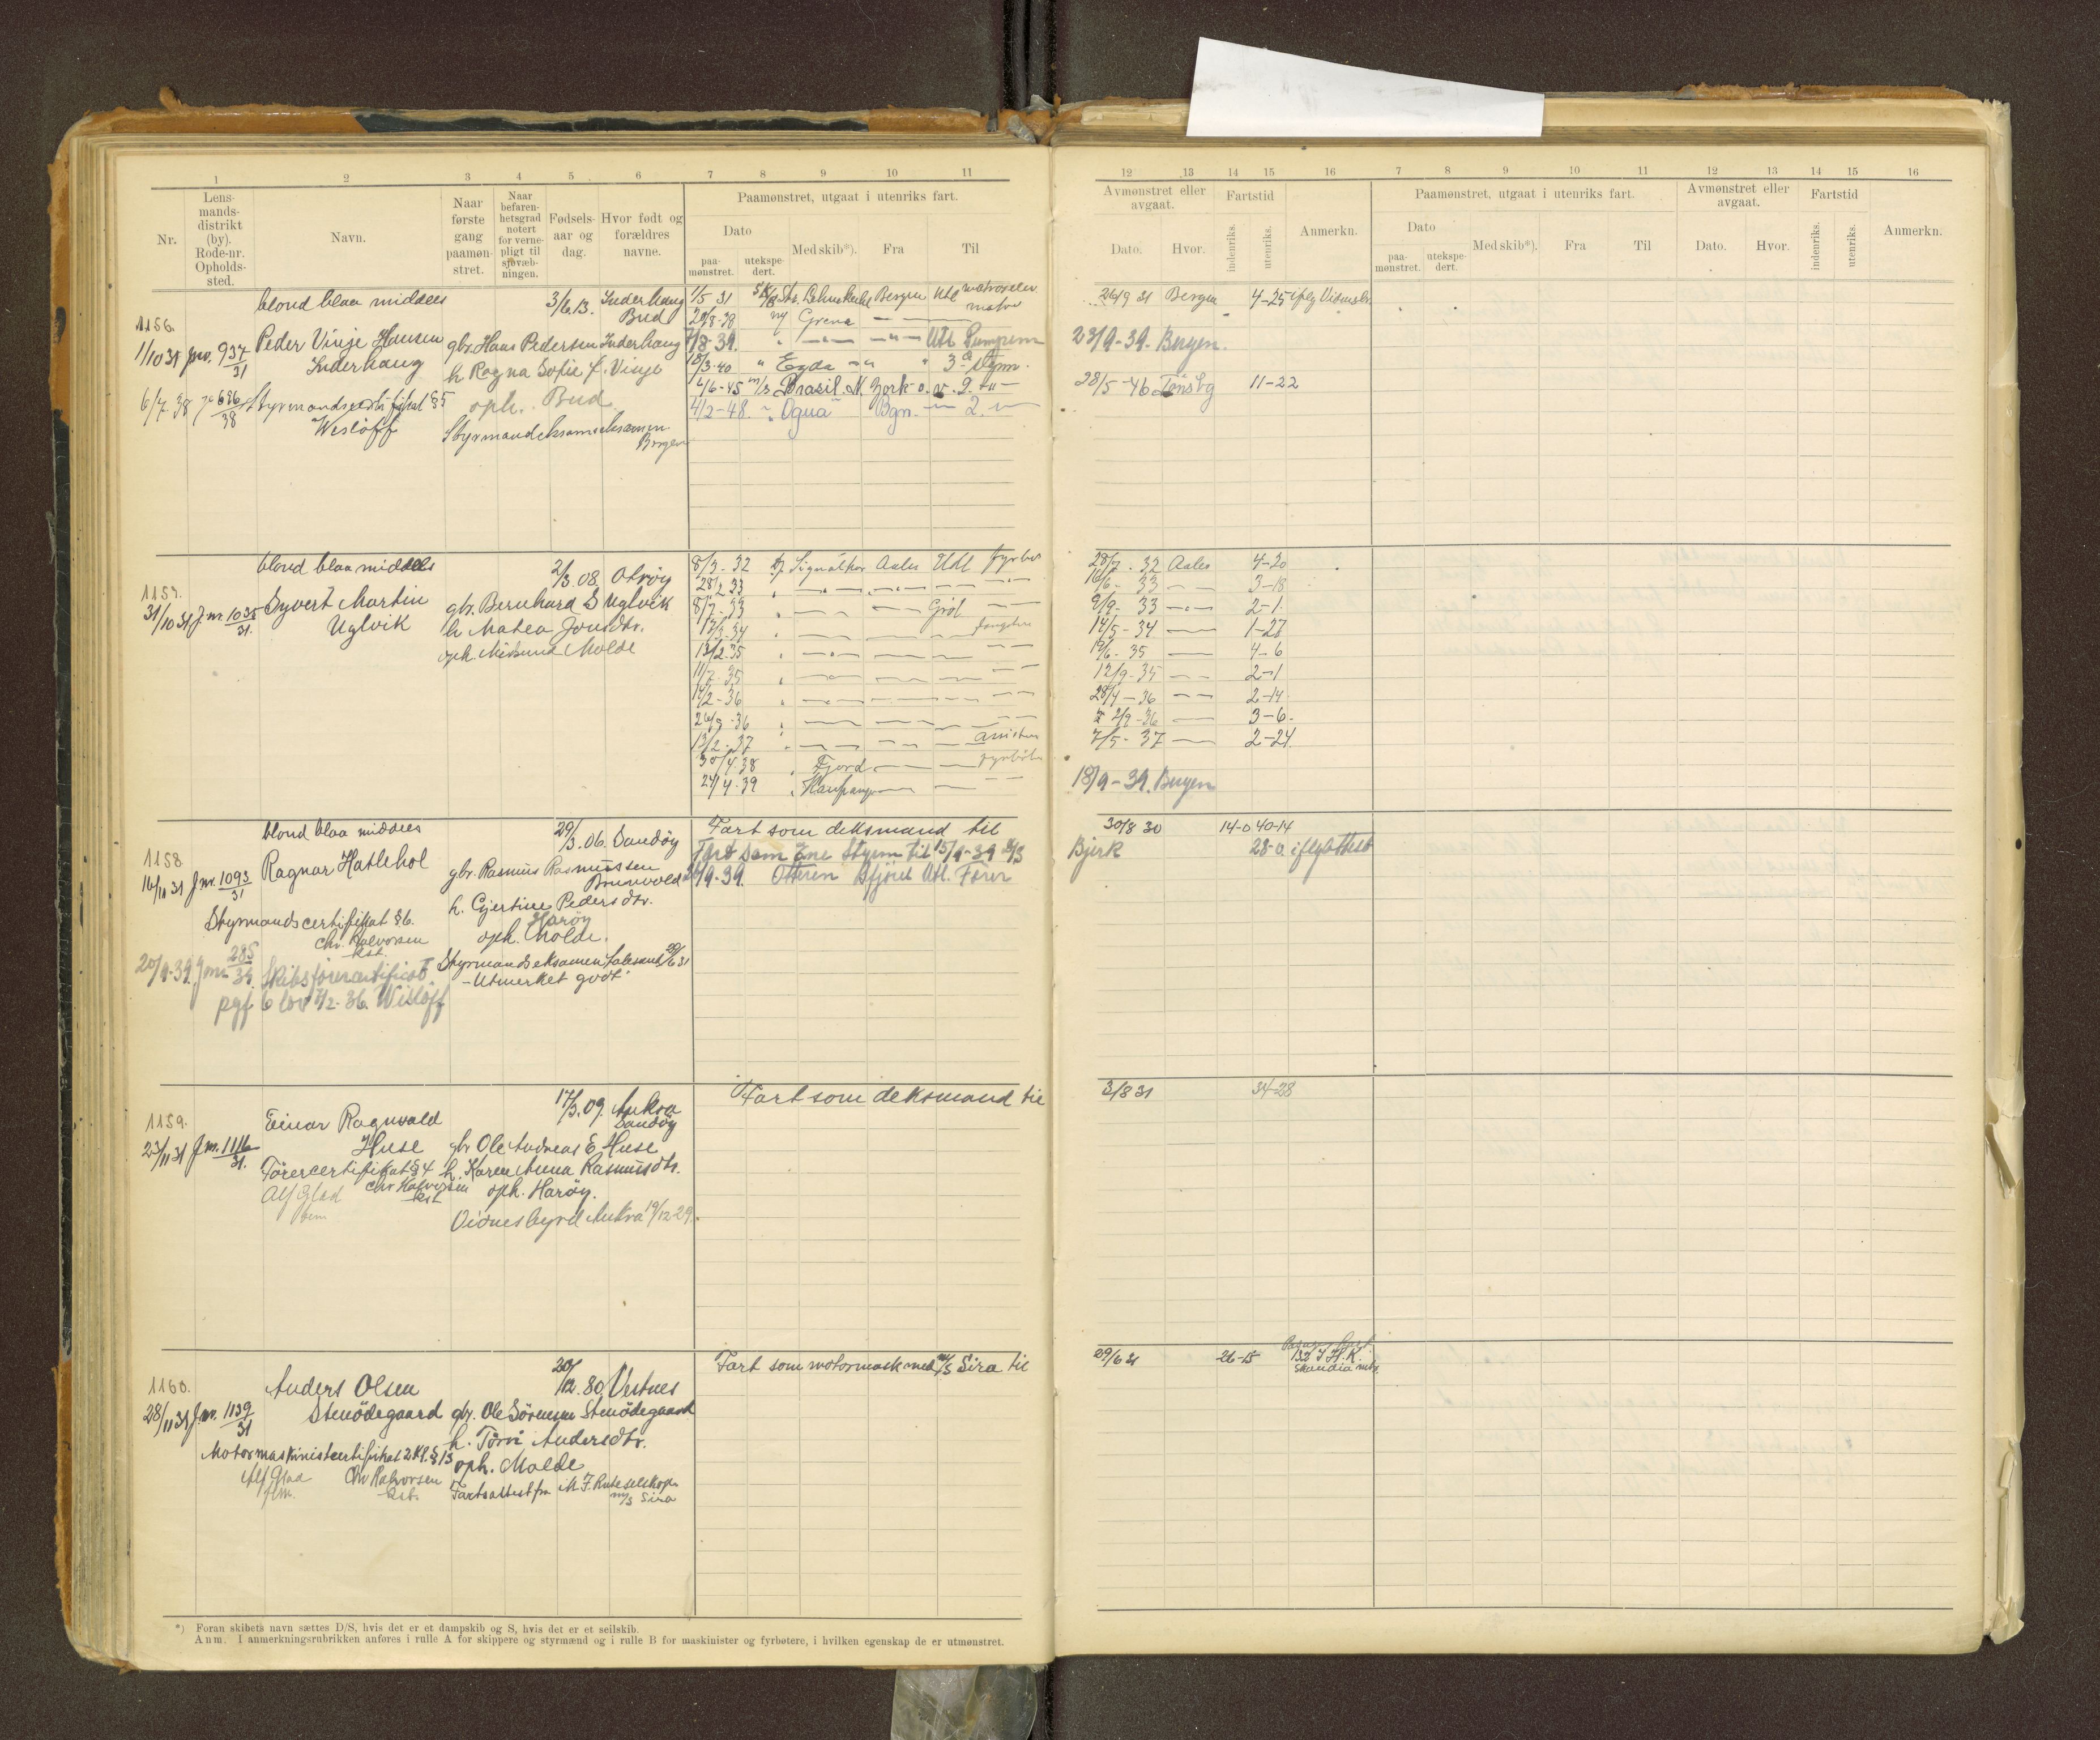 1 2 3 4 5 6 7 8 9 10 11
Nr.
Lens-
mands-
distrikt
(by).
Rode-nr.
Opholds-
sted.
Navn.
Naar
første
gang
paamøn-
stret.
Naar
befaren-
hetsgrad
notert
for verne-
pligt til
sjøvæb-
ningen.
Fødsels-
aar og
dag.
Hvor født og
forældres
navne.
Paamønstret, utgaat i utenriks fart.
Dato
paa-
mønstret.
utekspe-
dert.
Med skib*).
Fra
Til
12 13 14 15 16 7 8 9 10 11 12 13 14 15 16
Avmønstret eller
avgaat.
Dato.
Hvor.
Fartstid
indenriks.
utenriks.
Anmerkn.
Paamønstret, utgaat i utenriks fart.
Dato
paa-
mønstret.
utekspe-
dert.
Med skib*).
Fra
Til
Avmønstret eller
avgaat.
Dato.
Hvor.
Fartstid
indenriks.
utenriks.
Anmerkn.
blond blaa middels 3/6.13. Inderhaug
Bud
1156.
1/10 31 Jnr. 937/31 Peder Vinje Hansen gbr. Hans Pedersen Inderhaug
Inderhaug h Ragna Sofie f. Vinje
6/7 38 636/38 Styrmandscertifikat §5 oph. Bud
Wisløff Styrmandseksamen
Bergen
1/5 31 Bergen Utl
20/8-38 Grena — —
7/8-39. " — " — — " — Utl Pumpem
18/3-40 " Egda — " — " 3de Styrm.
16-45 m/s Brasil. N. York o. v. 2. — " —
4/2-48. " Ogna Bgn. — 2. —
26/9 31 Bergen 4-25 iflg Vidnesb.
23/9-39. Bergen.
28/5-46 Tønsbg 11-22
blond blaa middels 2/3.08. Otrøy
1157.
31/10 31 Jnr. 1035/31. Syvert Martin gbr. Bernhard S Uglvik
Uglvik h Matea Jonsdtr.
oph. Misund Molde
8/3-32 Signalhor Aales Utl fyrbøt
28/2 33 " — " — — " — — — —
8/7-33 " — — — Grøl — —
12/3-34 " — — — —
13/2-35 " — " — — — — —
11/7-35 " — — — — — —
14/2-36 " — — — — — —
26/9-36 " — — — — — —
13/2-37 " — — — — —
30/4.38 " Fjord — —
24/4-39 " Kaupanger — — —
28/7-32 Aales 4-20
16/6-33 — 3-18
9/9-33 — " — 2-1.
14/5-34 — 1-27
19/6-35 — 4-6
12/9-35 — — 2-1
28/4-36 — — 2-14.
2/9-36 — 3-6.
7/5-37 — 2-24.
18/9-39. Bergen
blond blaa middels 29/3.06. Sandøy
1158.
16/11 31 Jnr. 1093/31 Ragnar Hatlehol gbr. Rasmus Rasmussen
Brunvold
h. Gjertine Pedersdtr.
Styrmandscertifikat §6. Harøy
Chr. Halvorsen oph. Molde.
kst.
20/9-39. Jnr 285/39. Skibsførercertifikat Styrmandseksamen Aalesund 20/6 31
pgf 6 lov 7/2-36. Wisløff — Utmerket godt
Fart som deksmand til
Fart som 2ne Styrm til 15/9-39
19-39. Otteren Bfjord Utl. Fører
30/8 30 14-0 40-14
Bjerk 28-0 iflg attest
17/3.09. Aukra
Sandøy
1159.
23/11 31 Jnr. 1116/31. Einar Ragnvald
Huse gbr Ole Andreas E. Huse
Førercertifikat §4 h. Karen Anna Rasmusdtr.
Alf Glad Chr Halvorsen oph. Harøy.
fem kst
Vidnesbyrd Aukra 19/12 29.
Fart som deksmand til
3/8 31 34-28
20/12.80 Vestnes
1160.
28/11 31 Jnr. 1139/31 Anders Olsen
Stenødegaard gbr. Ole Sørensen Stenødegaard
h. Törri Andersdtr.
Motormaskinistcertifikat 2 kl. §13 oph. Molde
Alf Glad Chr Halvorsen
fem. kst.
Fartsattest fra M. F. Ruteselskap
m/s Sira
Fart som motormask med m/s Sira til
29/6 31 26-15 132 I H. K.
Skandia mot.
*) Foran skibets navn sættes D/S, hvis det er et dampskib og S, hvis det er et seilskib.
Anm. I anmerkningsrubrikken anføres i rulle A for skippere og styrmænd og i rulle B for maskinister og fyrbøtere, i hvilken egenskap de er utmønstret.